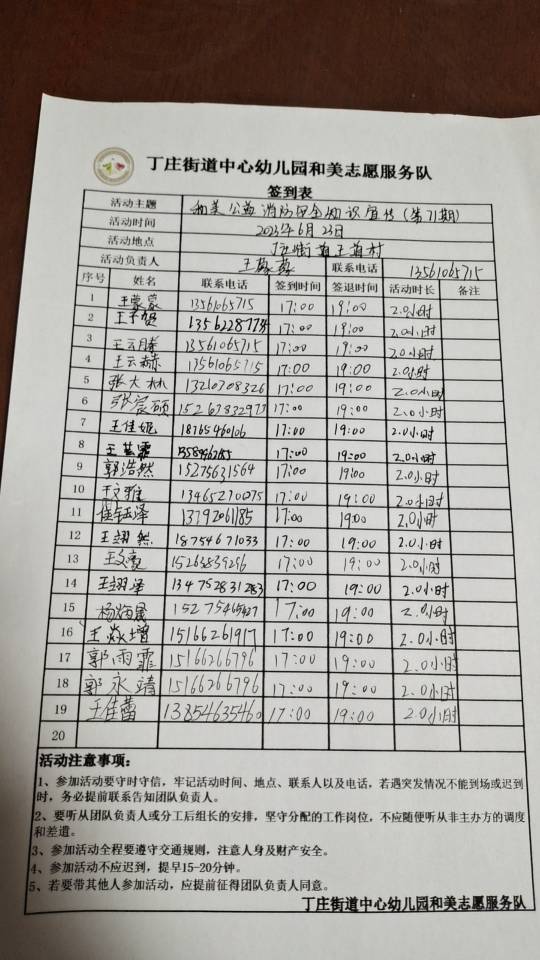 丁庄街道中心幼儿园和美志愿服务队
签到表
活动主题 和美公益消防安全知识宣传(第71期)
活动时间 2023年6月23日
活动地点 丁庄街道王道村
活动负责人 王蒙蒙 联系电话 13561065715
序号 姓名 联系电话 签到时间 签退时间 活动时长 备注
1 王蒙蒙 13561065715 17:00 19:00 2.0小时
2 17:00 19:00 2.0小时
3 13561065715 17:00 19:00 2.0小时
4 13561065715 17:00 19:00 2.0小时
5 张大林 13210708326 17:00 19:00 2.0小时
6 张宸硕 15263832977 17:00 19:00 2.0小时
7 王佳妮 18765460106 17:00 19:00 2.0小时
8 17:00 19:00 2.0小时
9 郭浩然 15275631564 17:00 19:00 2.0小时
10 13465270075 17:00 19:00 2.0小时
11 13792061185 17:00 19:00 2.0小时
12 王翊然 18754671033 17:00 19:00 2.0小时
13 王文豪 15263839256 17:00 19:00 2.0小时
14 王翊泽 134752831283 17:00 19:00 2.0小时
15 17:00 19:00 2.0小时
16 15166261917 17:00 19:00 2.0小时
17 郭雨霏 15166266796 17:00 19:00 2.0小时
18 郭永靖 15166266796 17:00 19:00 2.0小时
19 王佳蕾 13854635460 17:00 19:00 2.0小时
20
活动注意事项:
1、参加活动要守时守信,牢记活动时间、地点、联系人以及电话,若遇突发情况不能到场或迟到
时,务必提前联系告知团队负责人。
2、要听从团队负责人或分工后组长的安排,坚守分配的工作岗位,不应随便听从非主办方的调度
和差遣。
3、参加活动全程要遵守交通规则,注意人身及财产安全。
4、参加活动不应迟到,提早15-20分钟。
5、若要带其他人参加活动,应提前征得团队负责人同意。
丁庄街道中心幼儿园和美志愿服务队